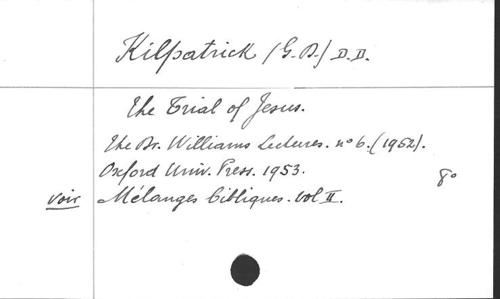 Kilpatrick (G.D.) D.D.
The Trial of Jesus.
The Dr. Williams Lectures. nº 6. (1952).
Oxford Univ. Press. 1953.
8º
voir Mélanges bibliques. vol II.